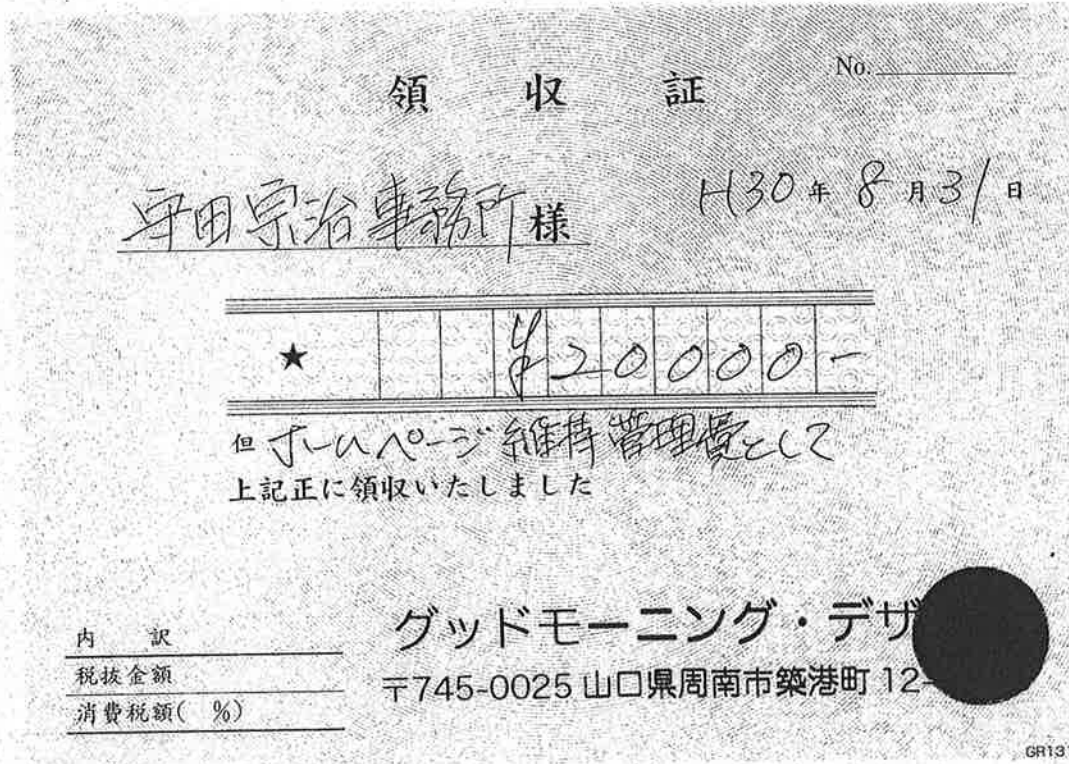 No.
領収証
守田宗治事務所様
H30年8月31日
★ ¥20000-
但 ホームページ維持管理費として
上記正に領収いたしました
内訳
税抜金額
消費税額( %)
グッドモーニング・デザ
〒745-0025 山口県周南市築港町 12-
GR13